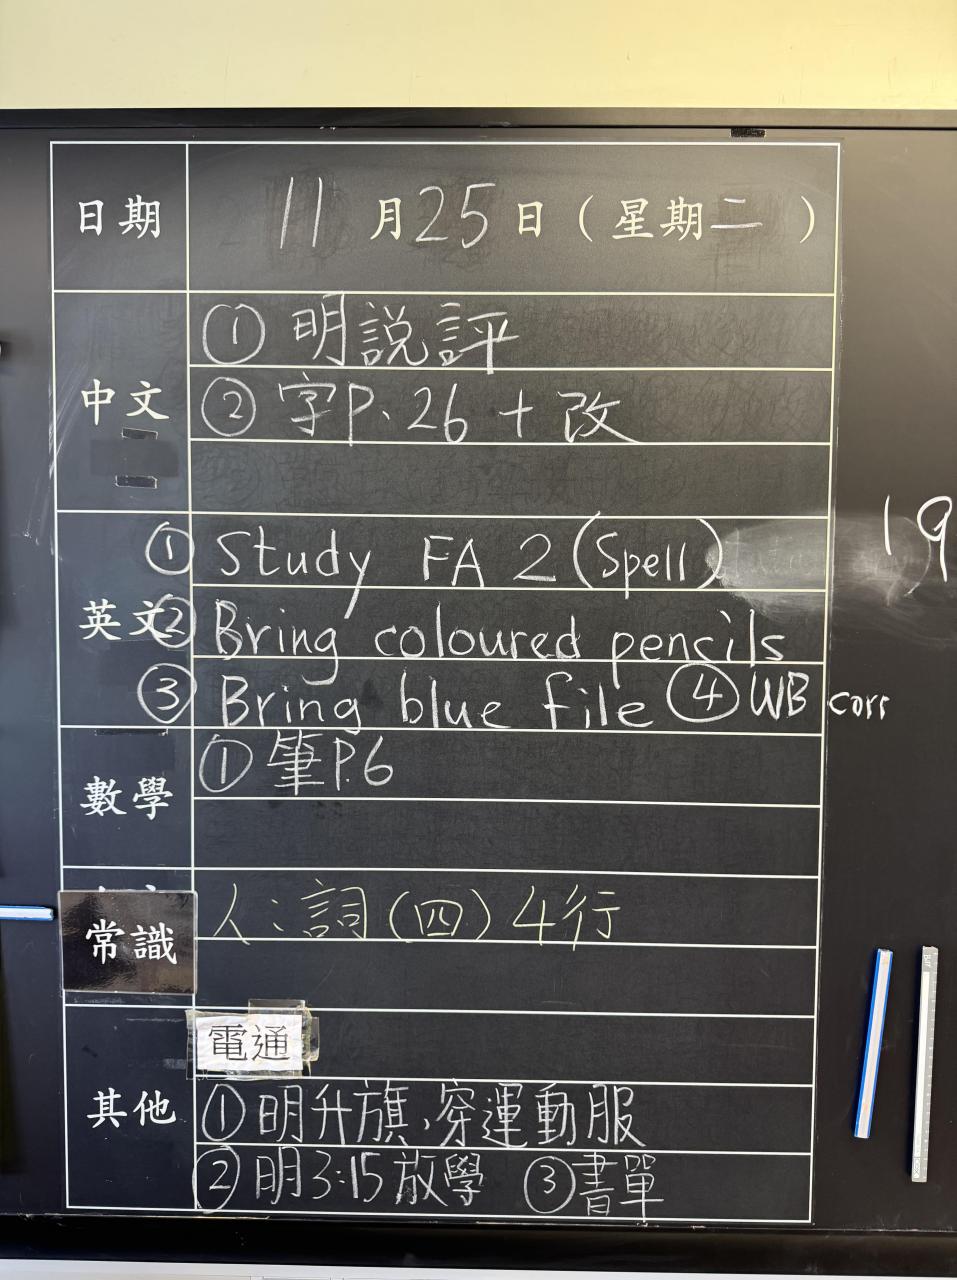 日期 11月25日(星期二)
① 明說評
中文 ② 字P.26 + 改
① Study FA 2 (Spell)
19
英文 ② Bring coloured pencils
③ Bring blue file ④ WB corr
數學 ① 筆P.6
人:詞(四)4行
常識
電通
其他 ① 明升旗,穿運動服
② 明3:15放學 ③ 書單